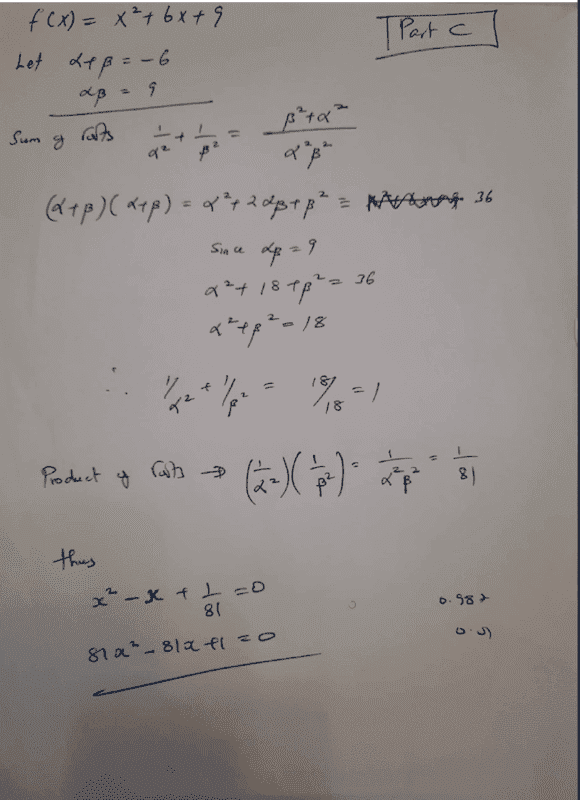 f(x) = x² + 6x + 9
Part C
Let α+β = -6
αβ = 9
Sum of roots 1/α² + 1/β² = (β²+α²)/(α²β²)
(α+β)(α+β) = α²+2αβ+β² = 36
Since αβ = 9
α² + 18 + β² = 36
α²+β² = 18
∴ 1/α² + 1/β² = 18/18 = 1
Product of roots → (1/α²)(1/β²) = 1/(α²β²) = 1/81
thus
x² - x + 1/81 = 0
0.987
81x² - 81x + 1 = 0